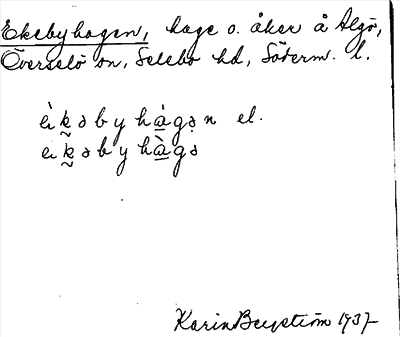 Ekebyhagen, hage o. åker å Algö,
Överselö sn, Selebo hd, Söderm. l.
èi k̰ ə b y h á̱ g ə̣ n el.
ei k̰ ə b y h à̱ g ə
Karin Bergström 1937